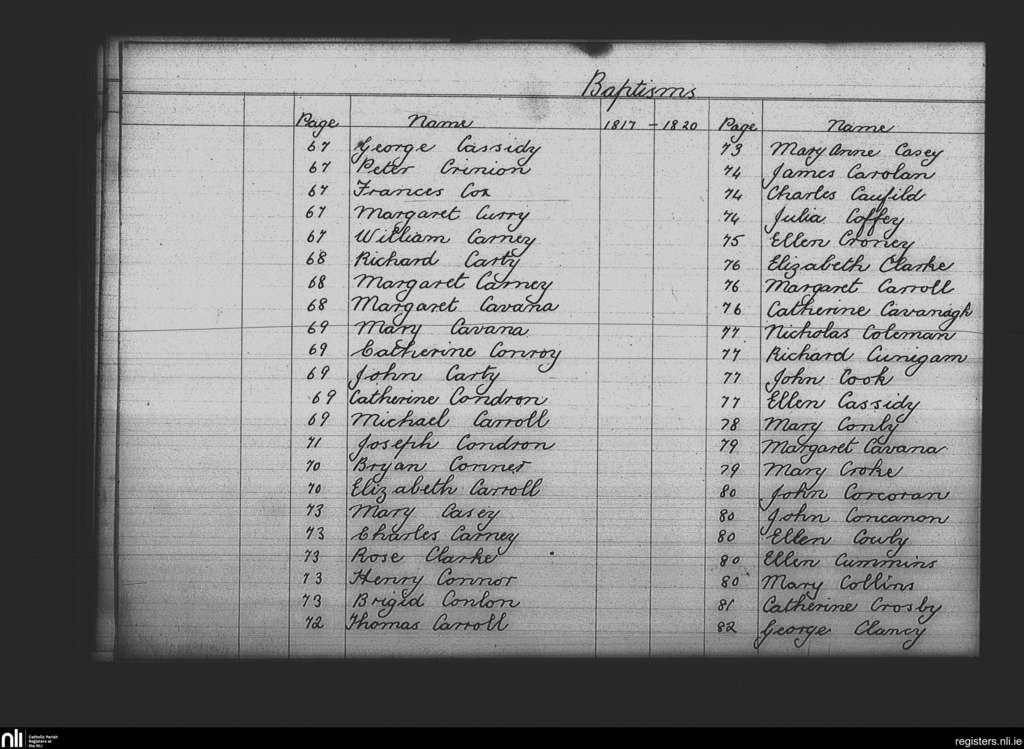 Baptisms
Page Name 1817 - 1820 Page Name
67 George Cassidy 73 Mary Anne Casey
67 Peter Crinion 74 James Carolan
67 Frances Cox 74 Charles Caufild
67 Margaret Curry 74 Julia Coffey
67 William Carney 75 Ellen Croney
68 Richard Carty 76 Elizabeth Clarke
68 Margaret Carney 76 Margaret Carroll
68 Margaret Cavana 76 Catherine Cavanagh
69 Mary Cavana 77 Nicholas Coleman
69 Catherine Conroy 77 Richard Cunigam
69 John Carty 77 John Cook
69 Catherine Condron 77 Ellen Cassidy
69 Michael Carroll 78 Mary Conly
71 Joseph Condron 79 Margaret Cavana
70 Bryan Conner 79 Mary Croke
70 Elizabeth Carroll 80 John Corcoran
73 Mary Casey 80 John Concanon
73 Charles Carney 80 Ellen Cowly
73 Rose Clarke 80 Ellen Cummins
73 Henry Connor 80 Mary Collins
73 Brigid Conlon 81 Catherine Crosby
72 Thomas Carroll 82 George Clancy
nli Catholic Parish
Registers at
the NLI
registers.nli.ie